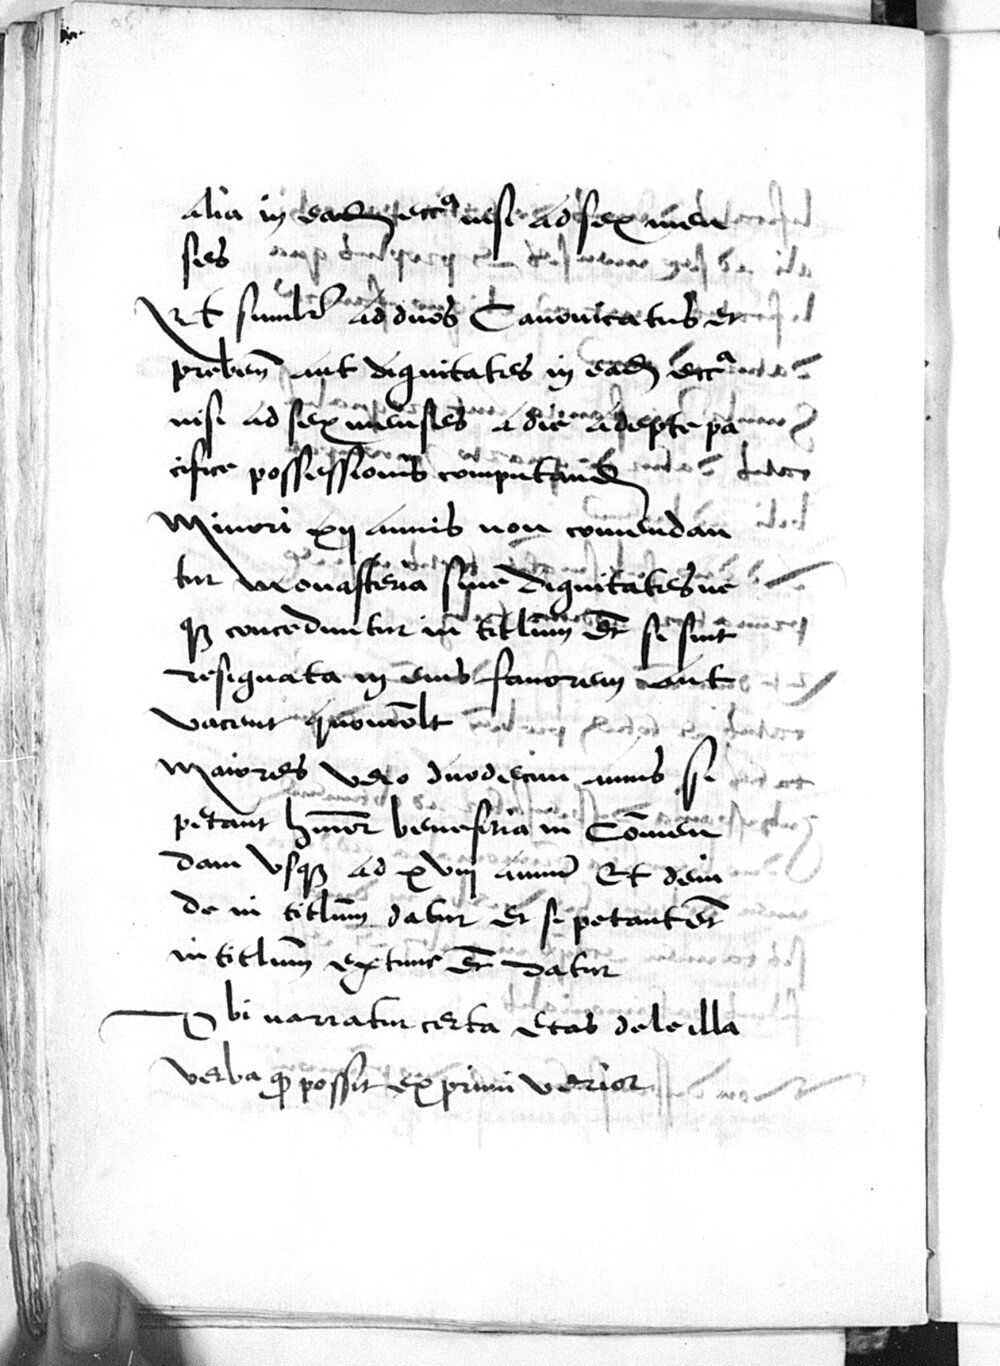 alia in ead eccᵃ nisi ad sex men
ses
Et similr ad duos Canonicatus et
preben aut dignitates in ead eccᵃ
nisi ad sex menses a die adepte pa
cifice possessionis computand
Minori xij annis non comendan
tur Monasteria sive dignitates ne
qȝ conceduntur in titlum Et si sint
resignata in eius favorem aut
vacent quomolt
Maiores vero duodecim annis si
petant hmoi beneficia in Comen
dam usqȝ ad xviij annum Et dein
de in titlum datur et si petant et
in titlum extunc et datur
Ubi narratur certa etas dele illa
verba ꝙ possit exprimi verior